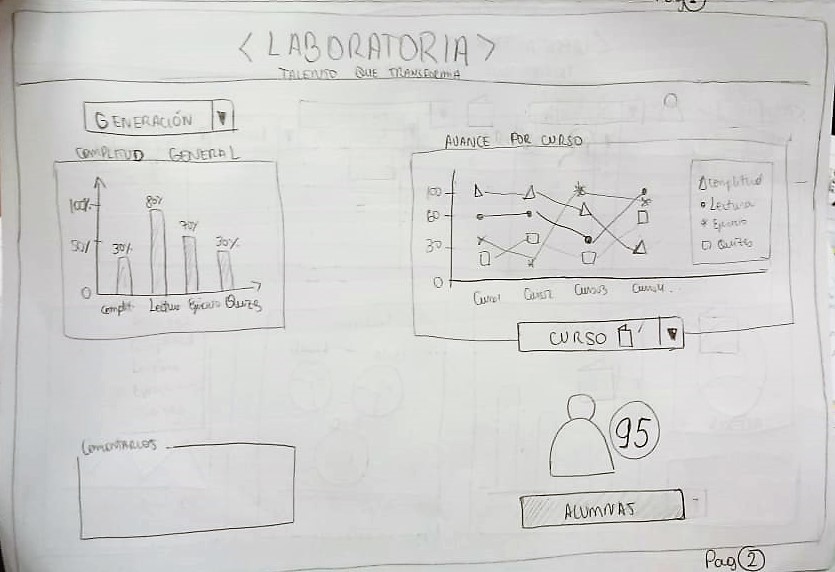 < LABORATORIA >
TALENTO QUE TRANSFORMA
GENERACIÓN
COMPLITUD GENERAL
100%
50%
0
30%
80%
70%
30%
Complit. Lectura Ejercicio Quizes
AVANCE POR CURSO
100
60
30
0
Curso1 Curso2 Curso3 Curso4..
Complitud
Lectura
Ejercicio
Quizes
CURSO
COMENTARIOS
95
ALUMNAS
Pag 2